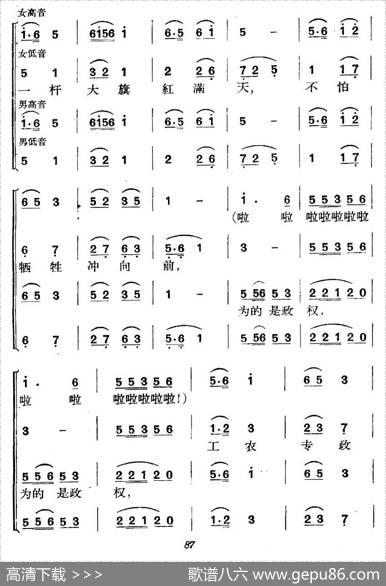 女高音
i·6 5 | 6i56 i | 6·5 6i | 5 - | 5·6 i2
女低音
5 1 | 32 1 | 2 26 | 72 5 | 1 17
一杆 大旗 紅满 天, 不怕
男高音
i·6 5 | 6i56 i | 6·5 6i | 5 - | 5·6 i2
男低音
5 1 | 32 1 | 2 26 | 72 5 | 1 17
65 3 | 52 35 | 1 - | i· 6 | 55356
(啦 啦 啦啦啦啦啦
6 7 | 27 63 | 5·6 1 | 3 - | 55356
牺牲 冲向 前,
65 3 | 52 35 | 1 - | 556 53 | 22120
为的是政 权,
6 7 | 27 63 | 5·6 1 | 556 53 | 22120
i· 6 | 55356 | 5·6 i | 65 3
啦 啦 啦啦啦啦啦!)
3 - | 55356 | 1·2 3 | 23 7
工农 专政
55653 | 22120 | 5·6 i | 65 3
为的是政 权,
55653 | 22120 | 1·2 3 | 23 7
87
高清下载 >>>
歌谱八六 www.gepu86.com